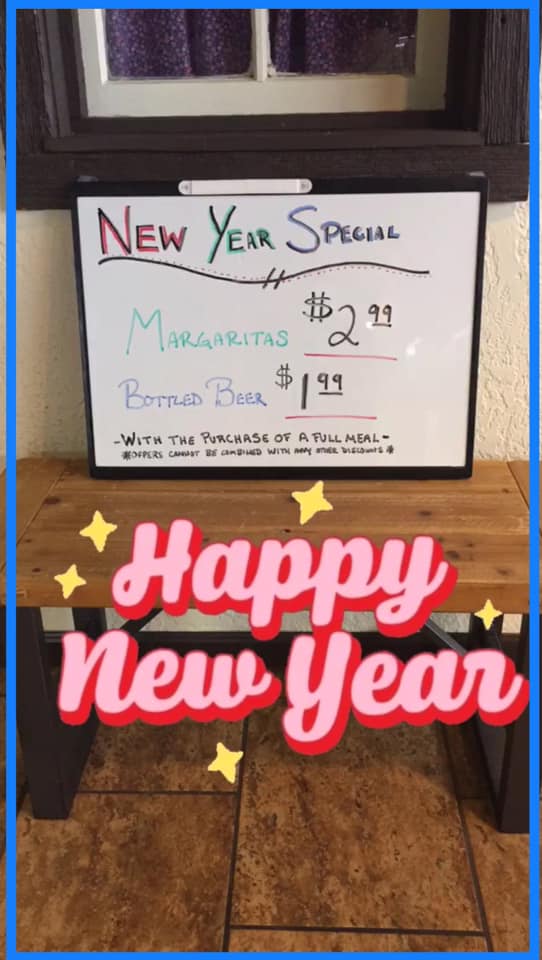 NEW YEAR SPECIAL
MARGARITAS $2.99
BOTTLED BEER $1.99
-WITH THE PURCHASE OF A FULL MEAL-
*OFFERS CANNOT BE COMBINED WITH ANY OTHER DISCOUNTS*
Happy
New Year